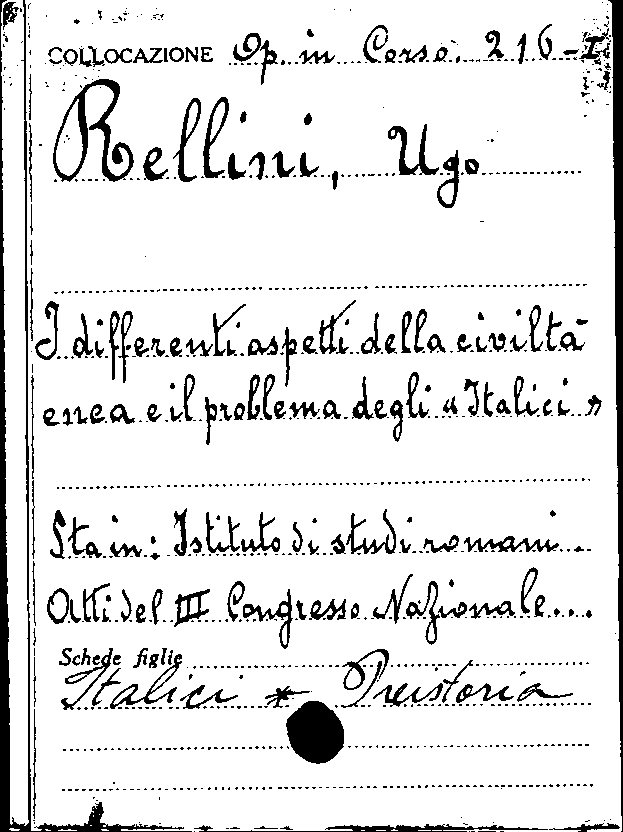 COLLOCAZIONE Op. in Corso. 216-I
Rellini, Ugo
I differenti aspetti della civiltà
enea e il problema degli «Italici»
Sta in: Istituto di studi romani.
Atti del III Congresso Nazionale...
Schede figlie
Italici * Preistoria